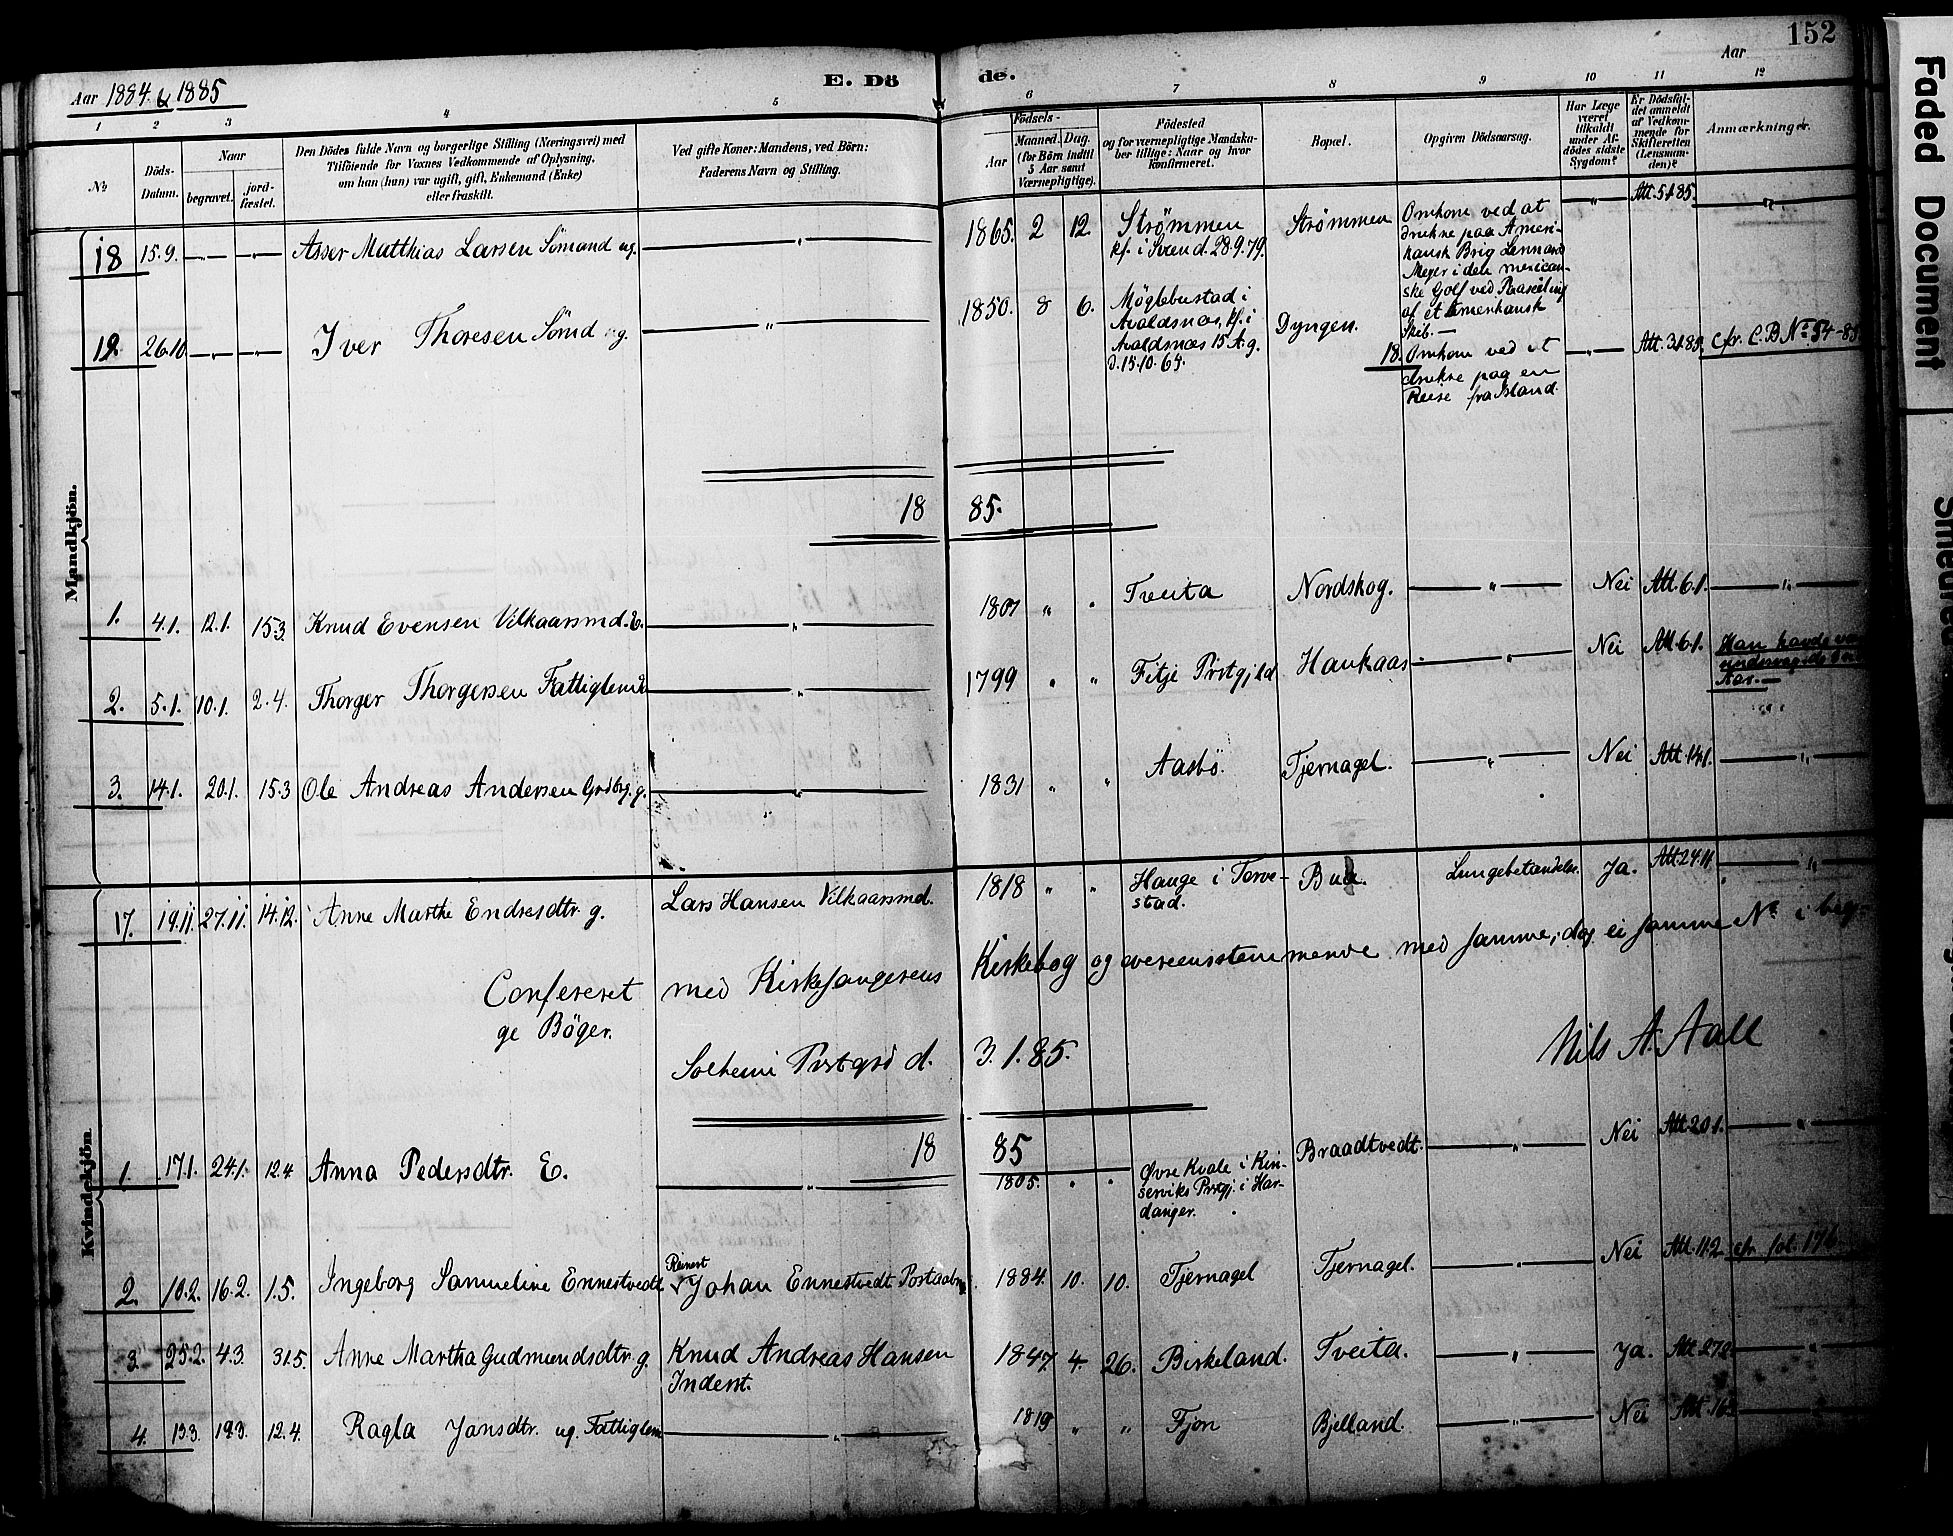 152
Aar 1884 & 1885
E. Döde.
Aar
1 2 3 4 5 6 7 8 9 10 11 12
No
Döds-Datum.
Naar
begravet.
jord-fæstet.
Den Dödes fulde Navn og borgerlige Stilling (Næringsvei) med
Tilföiende for Voxnes Vedkommende af Oplysning,
om han (hun) var ugift, gift, Enkemand (Enke)
eller fraskilt.
Ved gifte Koner: Mandens, ved Börn:
Faderens Navn og Stilling.
Födsels-
Aar
Maaned. Dag.
(for Börn indtil
5 Aar samt
Værnepligtige).
Födested
og for værnepligtige Mandska-
ber tillige: Naar og hvor
konfirmeret.
Bopæl.
Opgiven Dödsaarsag.
Har Læge
været
tilkaldt
under Af-
dödes sidste
Sygdom?
Er Dödsfal-
det anmeldt
af Vedkom-
mende for
Skifteretten
(Lensman-
den)?
Anmærkninger.
Mandkjön.
18 15.9. —„— —„— Asser Matthias Larsen Sömand ug. „ 1865. 2 12. Strømmen
kf. i Sveen d. 28.9.79.
Strømmen
Omkom ved at
drukne paa Ameri-
kansk Brig Lennard
Meyer i den mexican-
ske Golf ved Paaseiling
af et Amerikansk
Skib.—
—„— Att. 5.1.85. „
19. 26.10. —„— —„— Iver Thoresen Sömd ug. „ 1850. 8 6. Möglebustad i
Avaldsnes, kf. i
Avaldsnes 15 A. g.
d. 15.10.65.
Dyngen.
18. Omkom ved at
drukne paa en
Reise fra Island.
—„— Att. 3.1.85. cfr. C. B No 54-85
18 85.
1. 4.1. 12.1. 15.3. Knud Evensen Vilkaarsmd. E. „ 1807 „ „ Tveita Nordskog. „ Nei Att. 6.1. „
2. 5.1. 10.1. 2.4. Thorger Thorgersen Fattiglem „ 1799 „ „ Fitje Prstgjeld Haukaas „ Nei Att. 6.1. Han havde
Aar.—
3. 14.1. 20.1. 15.3 Ole Andreas Andersen Grdbrg. g. „ 1831 „ „ Aasbö. Tjernagel. „ Nei Att. 14.1. „
Kvindekjön.
17. 19.11. 27.11. 14.12. Anne Marthe Endresdtr. g. Lars Hansen Vilkaarsmd. 1818 „ „ Hauge i Torve-
stad.
Bua. Lungebetændelse. Ja. Att. 24.11. „
Confereret med Kirkesangerens Kirkebog og overensstemmende med samme, dog ei samme No i beg-
ge Böger.
Solheim Prstgrd d. 3.1.85. Nils A. Aall
18 85
1. 17.1. 24.1. 12.4 Anna Pedersdtr. E. „ 1805. „ „ Øvre Kvale i Kin-
serviks Prstgj. i Har-
danger.
Braadtvedt. „ Nei Att. 20.1. „
2. 10.2. 16.2. 1.5. Ingeborg Samueline Ennestvedt Reinert
√Johan Ennestvedt Postaabn. 1884. 10. 10. Tjernagel Tjernagel. „ Nei Att. 11.2. cfr. fol. 196
3. 25.2. 4.3. 31.5. Anne Martha Gudmundsdtr. g. Knud Andreas Hansen
Inderst.
1847 4. 26. Birkeland. Tveita. „ Ja. Att. 27.2. „
4. 13.3. 19.3. 12.4. Ragla Jansdtr. ug. Fattiglem „ 1819 „ „ Fjon Bjelland. „ Nei Att. 16.3. „
Faded Document